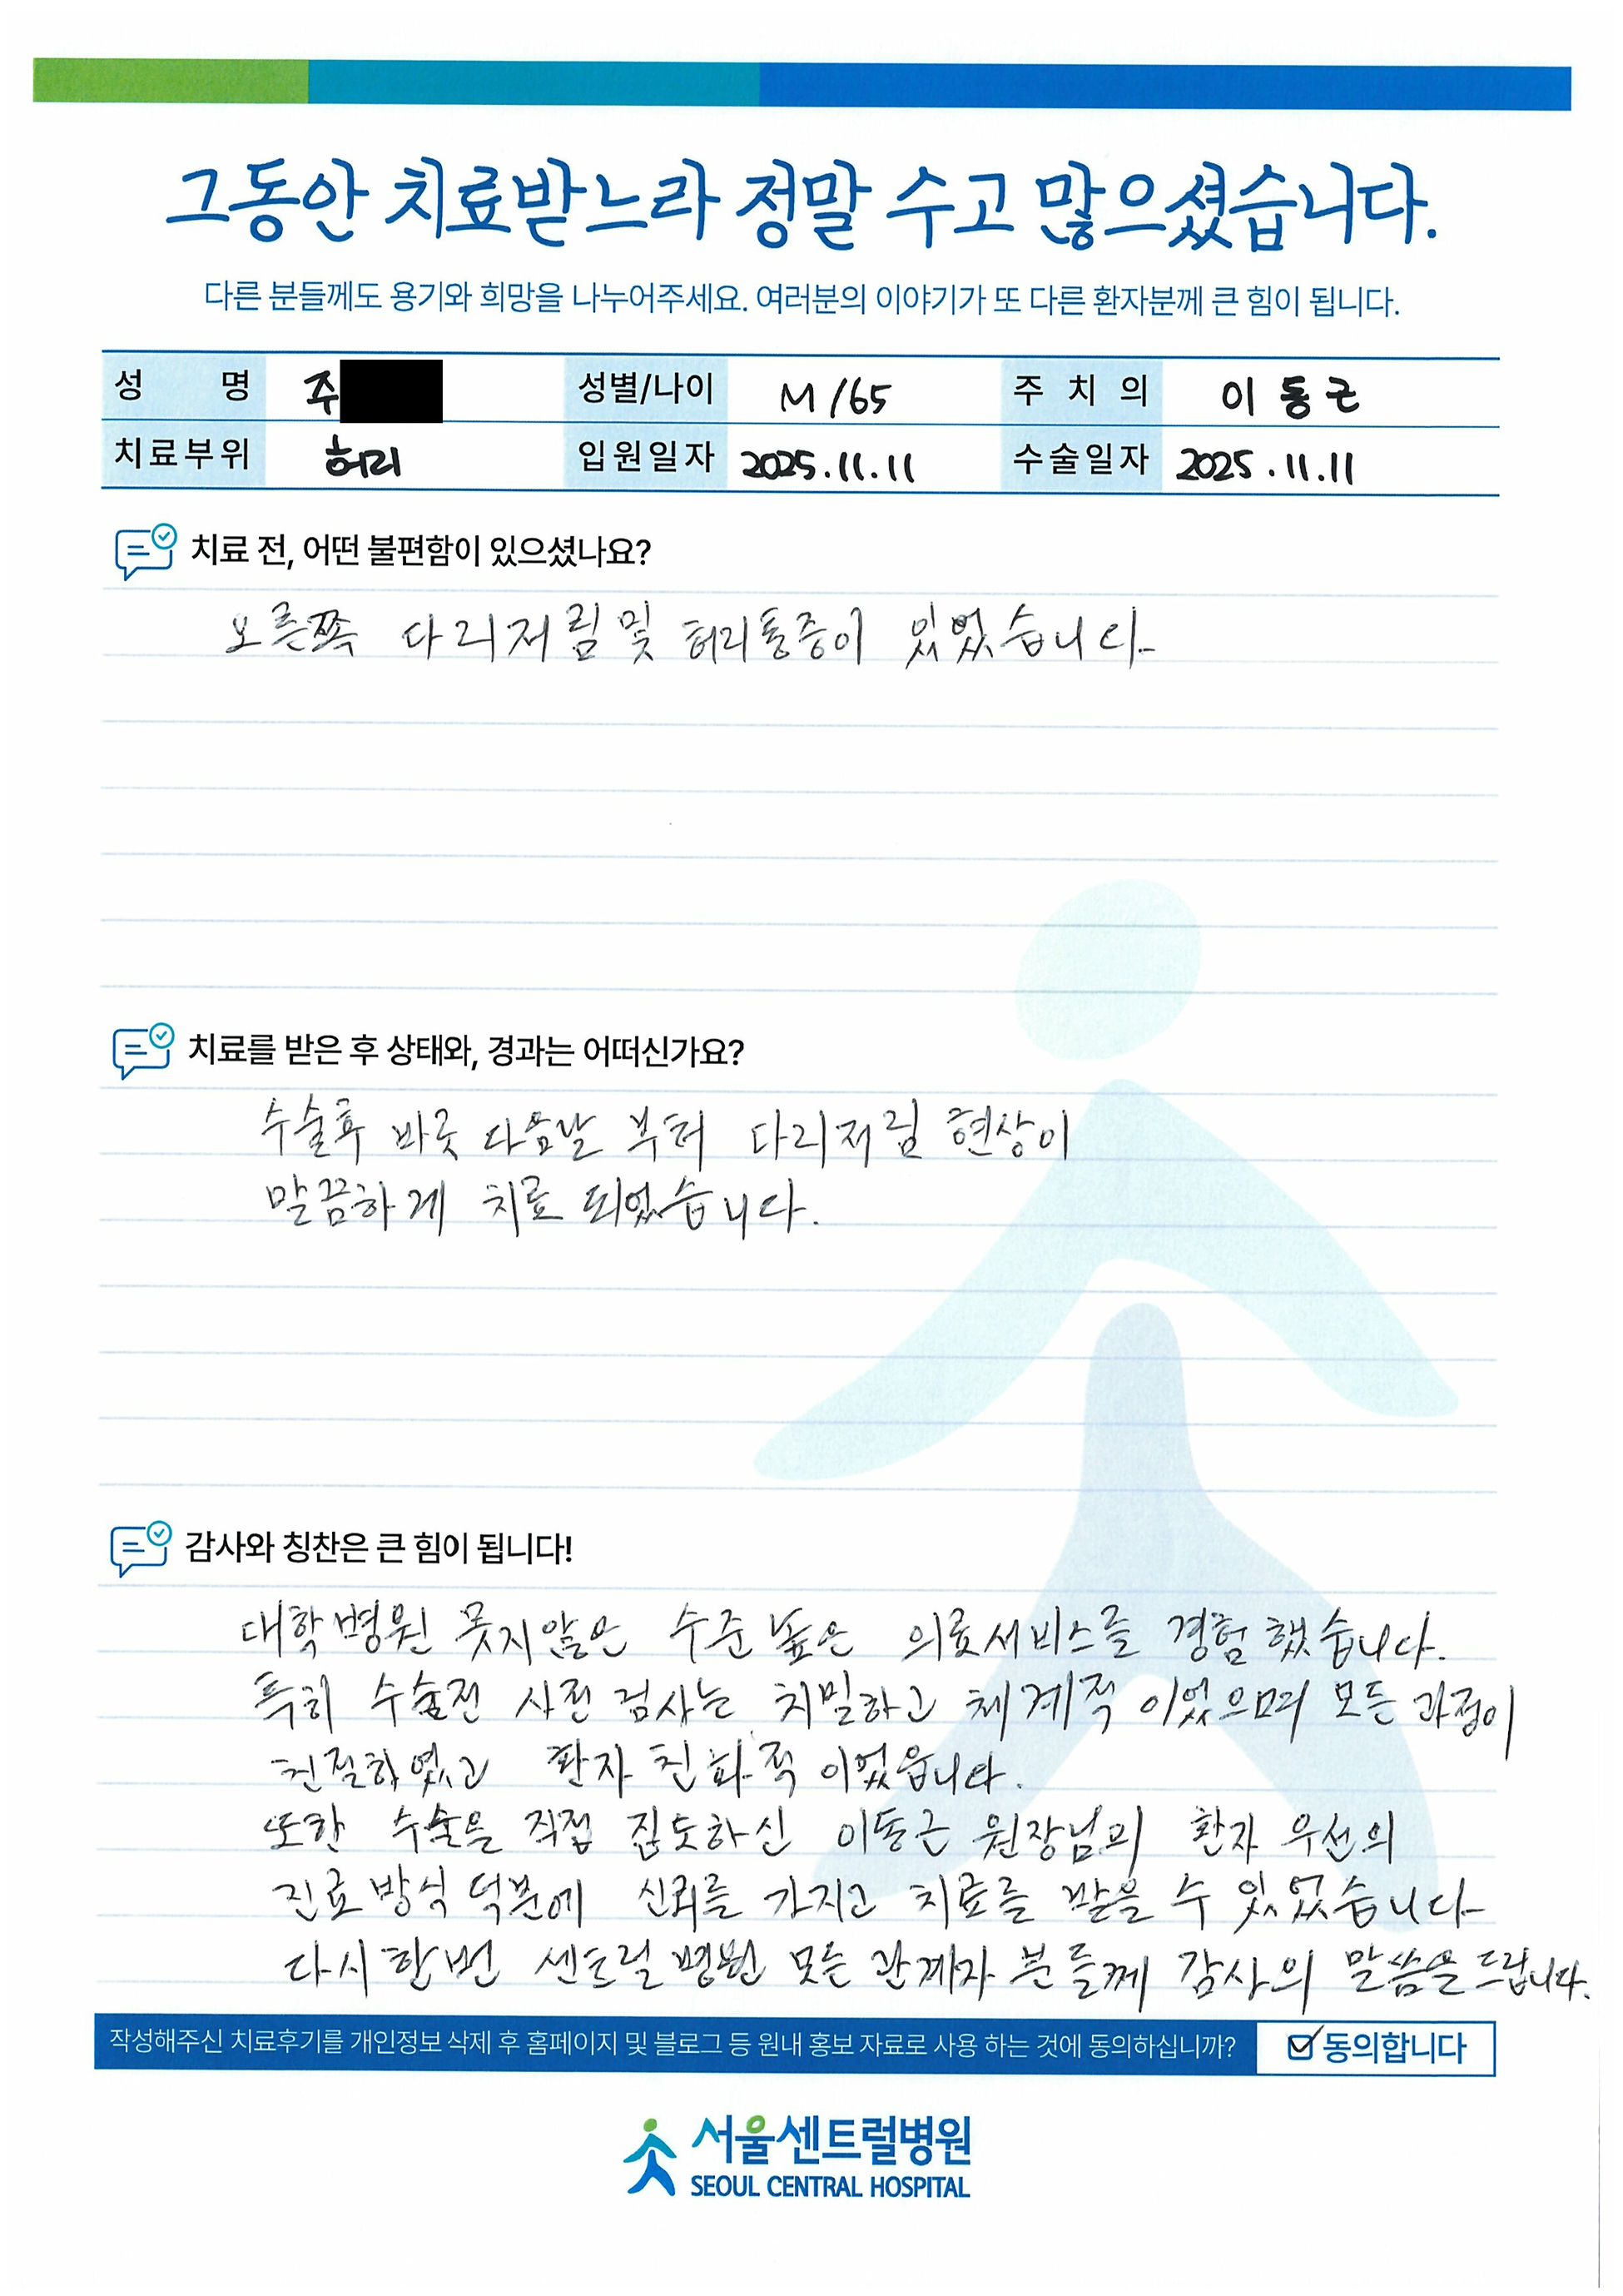 그동안 치료받느라 정말 수고 많으셨습니다.
다른 분들께도 용기와 희망을 나누어주세요. 여러분의 이야기가 또 다른 환자분께 큰 힘이 됩니다.
성 명 주 성별/나이 M/65 주 치 의 이동근
치료부위 허리 입원일자 2025.11.11 수술일자 2025.11.11
치료 전, 어떤 불편함이 있으셨나요?
오른쪽 다리저림 및 허리통증이 있었습니다.
치료를 받은 후 상태와, 경과는 어떠신가요?
수술후 바로 다음날 부터 다리저림 현상이
말끔하게 치료 되었습니다.
감사와 칭찬은 큰 힘이 됩니다!
대학병원 못지않은 수준 높은 의료서비스를 경험했습니다.
특히 수술전 사전 검사는 치밀하고 체계적 이었으며 모든 과정이
친절하였고 환자 친화적 이었읍니다.
또한 수술을 직접 집도하신 이동근 원장님의 환자 우선의
진료 방식 덕분에 신뢰를 가지고 치료를 받을 수 있었습니다
다시한번 센트럴 병원 모든 관계자 분들께 감사의 말씀을 드립니다.
작성해주신 치료후기를 개인정보 삭제 후 홈페이지 및 블로그 등 원내 홍보 자료로 사용 하는 것에 동의하십니까? 동의합니다
서울센트럴병원
SEOUL CENTRAL HOSPITAL